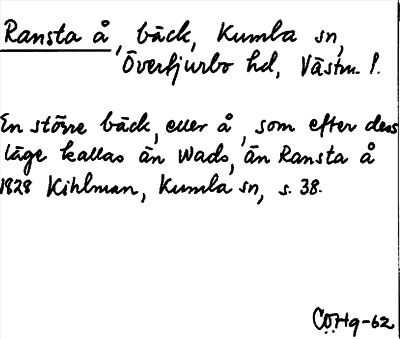 Ransta å, bäck, Kumla sn,
Överfjurbo hd, Västm. l.
En större bäck, eller å, som efter dess
läge kallas än Wads, än Ransta å
1828 Kihlman, Kumla sn, s. 38.